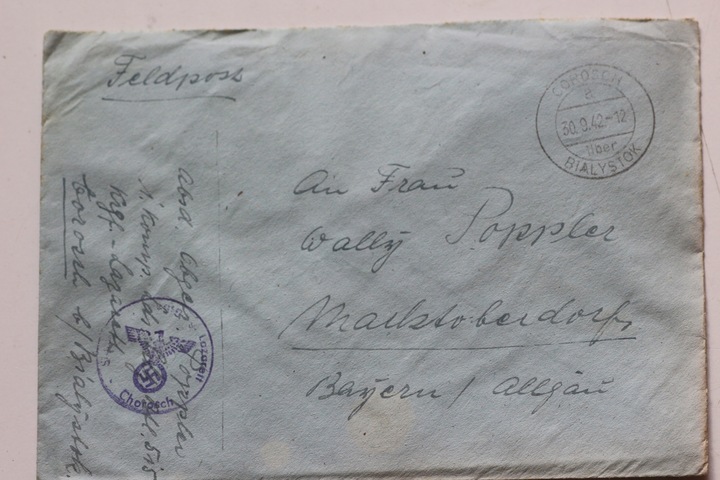 Feldpost
COROSCH
a
30.9.42-12
über
BIALYSTOK
An Frau
Wally Poppler
Marktoberdorf
Bayern / Allgäu
Absd. Poppler
1. Komp. 515
Krgf.-Lazarett
Corosch b/Bialystok.
Lazarett
Chorosch